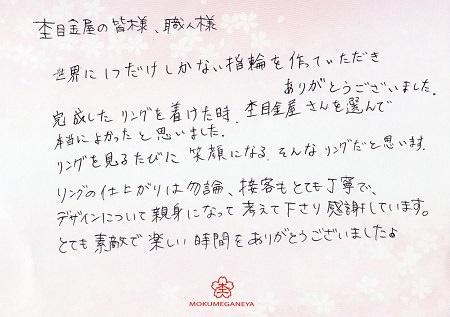 杢目金屋の皆様、職人様
世界に1つだけしかない指輪を作っていただき
ありがとうございました。
完成したリングを着けた時、杢目金屋さんを選んで
本当によかったと思いました。
リングを見るたびに笑顔になる、そんなリングだと思います。
リングの仕上がりは勿論、接客もとても丁寧で、
デザインについて親身になって考えて下さり感謝しています。
とても素敵で楽しい時間をありがとうございました♪
杢
MOKUMEGANEYA